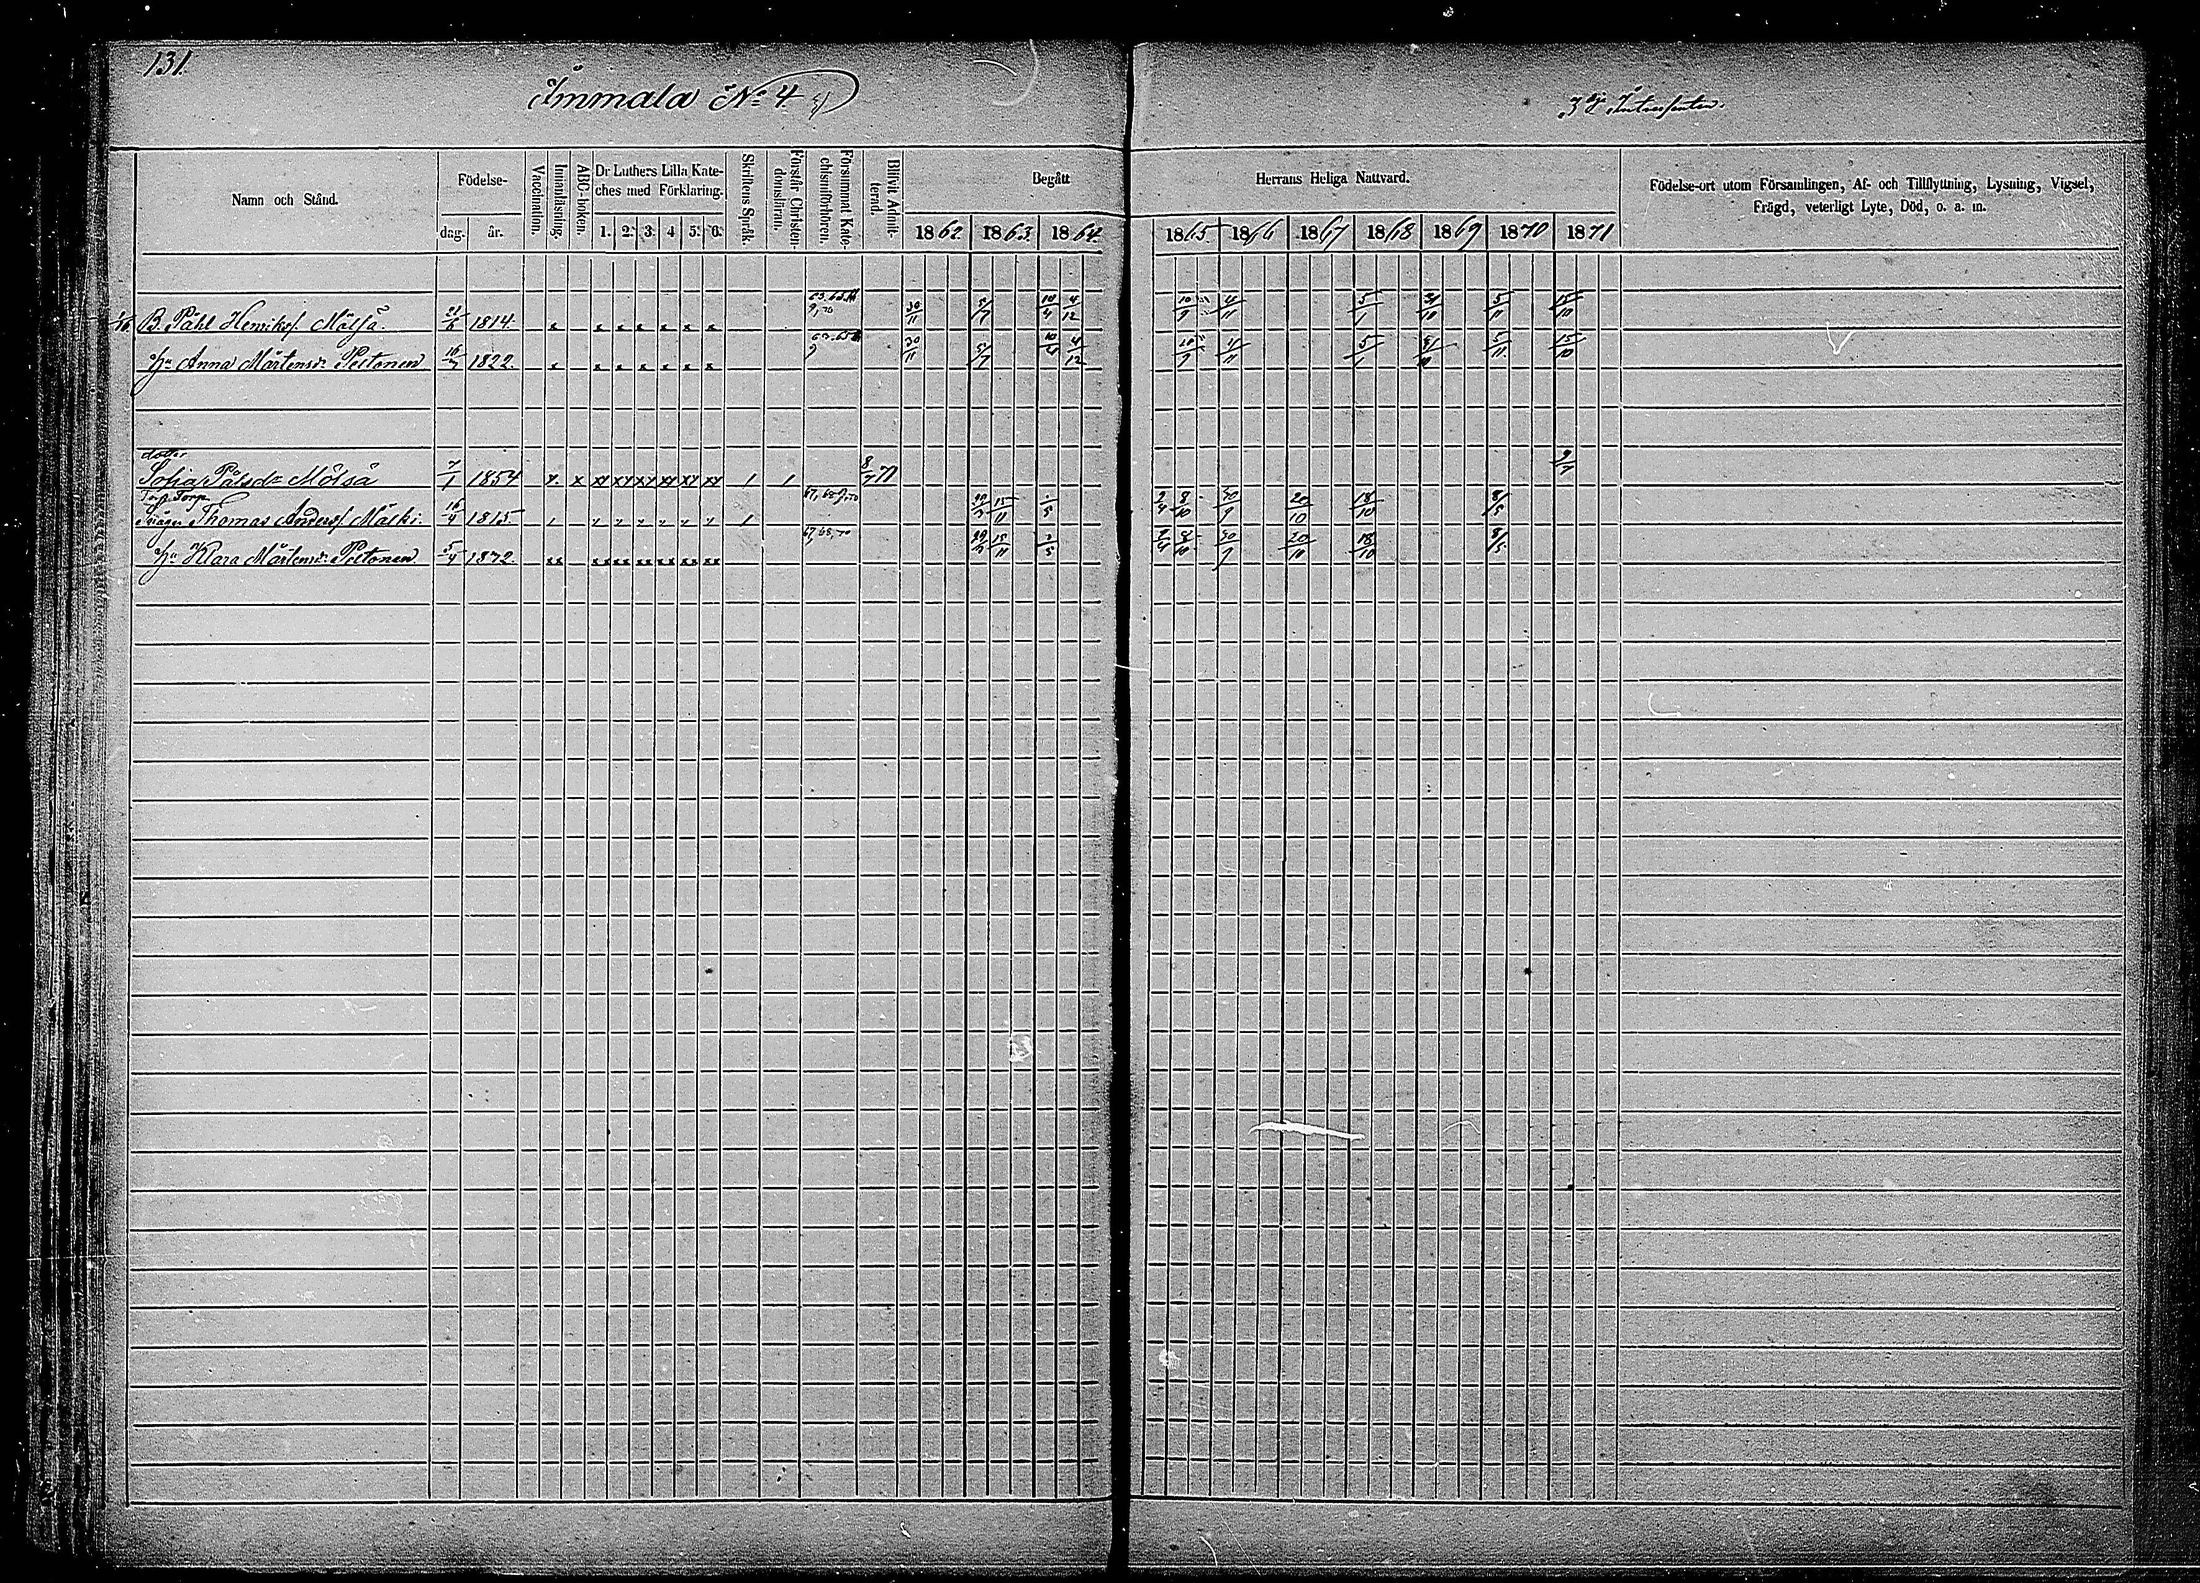 131.
Immala No 4
3dje Intressenten.
Namn och Stånd.
Födelse-
dag. år.
Vaccination.
Innanläsning.
ABC-boken.
Dr Luthers Lilla Kate-
ches med Förklaring.
1. 2. 3. 4 5. 6.
Skriftens Språk.
Förstår Christen-
domsläran.
Försummat Kate-
chismiförhören.
Blifvit Admit-
terad.
Begått
1862. 1863. 1864.
Herrans Heliga Nattvard.
1865. 1866 1867 1868 1869 1870 1871
Födelse-ort utom Församlingen, Af- och Tillflyttning, Lysning, Vigsel,
Frägd, veterligt Lyte, Död, o. a. m.
B. Påhl Henriksf. Mölsä. 21/6 1814. x x x x x x x 30/11 5/7 10/4 4/12 10/9 4/11 5/1 31/10 5/11 15/10
Hu Anna Mårtensdr Peltonen 1822. x x x x x x x 30/11 5/7 10/4 4/12 10/9 4/11 5/1 31/10 5/11 15/10
dotter
Sofia Pålsdr Mölsä 7/1 1854 x. x xx xx xx xx xx xx / / 8/7 71 9/7
Torp.
Svåger Thomas Andersf. Mälki. 16/4 1815 67, 68, 70 15/11 2/4 8/10 30/9 20/10 18/10 8/5
Hu Klara Mårtensdr Peltonen 5/4 1822. xx xx xx xx xx xx xx 67, 68, 70 15/11 2/5 2/4 8/10 30/9 20/10 18/10 8/5